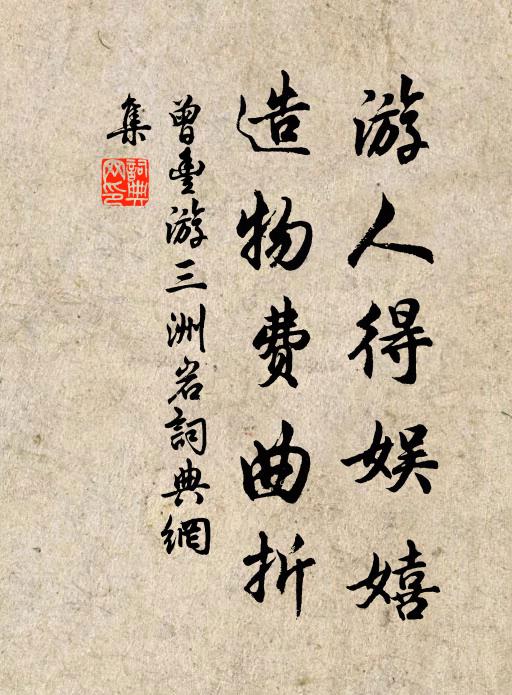 游人得娱嬉
造物费曲折
曾丰游三洲岩詞典網
集
詞典
网印